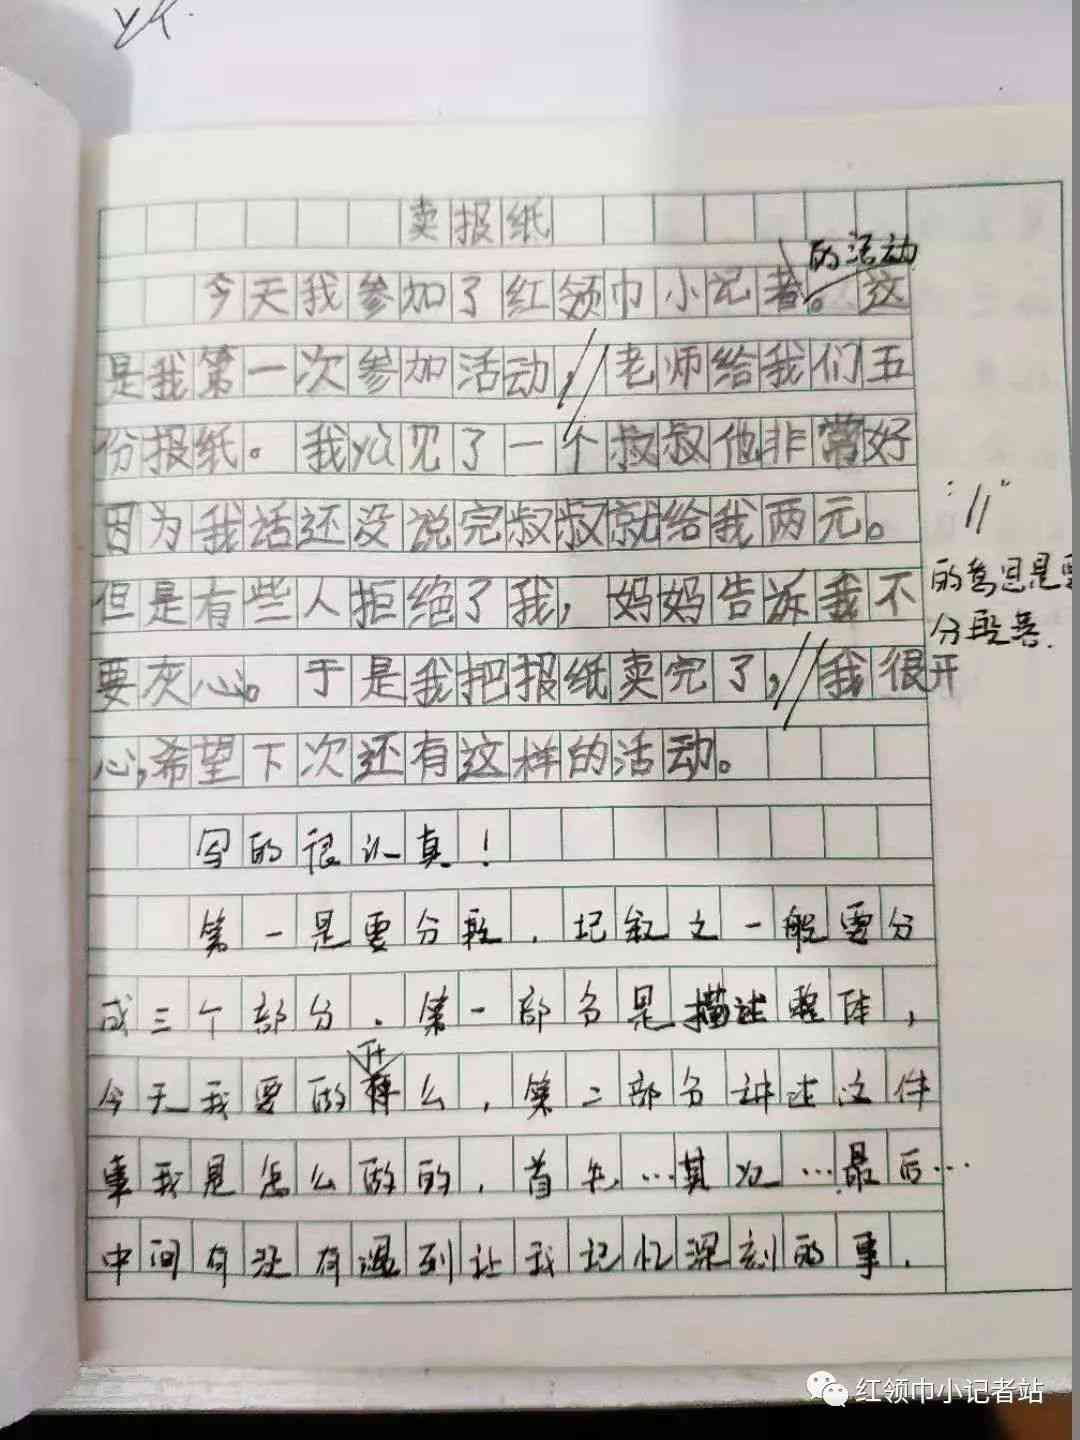 卖报纸
的活动
今天我参加了红领巾小记者。这
是我第一次参加活动,//老师给我们五
份报纸。我yù见了一个叔叔他非常好
因为我话还没说完叔叔就给我两元。
但是有些人拒绝了我，妈妈告诉我不
要灰心。于是我把报纸卖完了,//我很开
心,希望下次还有这样的活动。
"//"
的意思是要
分段哦.
写的很认真！
第一是要分段，记叙文一般要分
成三个部分．第一部分是描述整体，
今天我要做什么，第二部分讲述这件
事我是怎么做的，首先…其次…最后…
中间有没有遇到让我记忆深刻的事．
红领巾小记者站